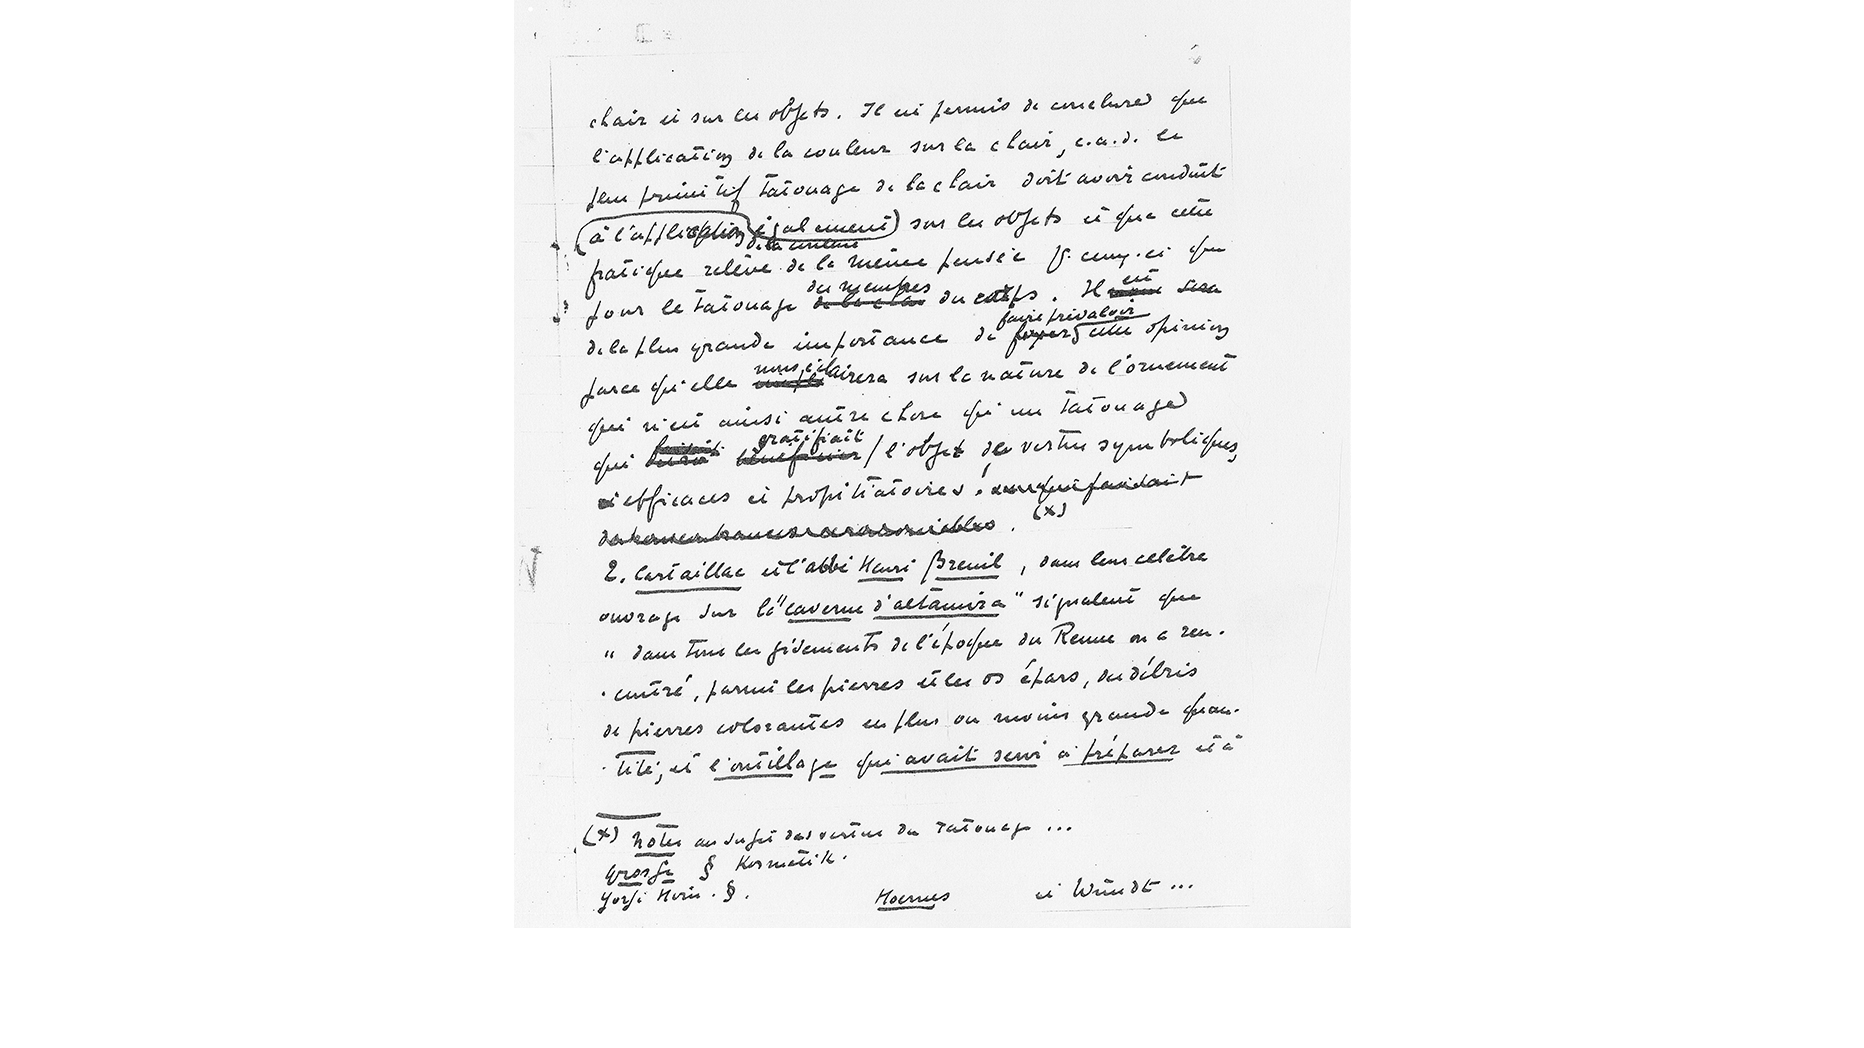 chair et sur les objets. Il est permis de conclure que
l'application de la couleur sur la chair, c.a.d. le
plus primitif tatouage de la chair doit avoir conduit
à l'application également de la couleur sur les objets et que cette
pratique relève de la même pensée p. ceux-ci que
pour le tatouage des membres du corps. Il est
de la plus grande importance de faire prévaloir cette opinion
parce qu'elle nous éclairera sur la nature de l'ornement
qui n'est ainsi autre chose qu'un tatouage
qui gratifiait l'objet de vertus symboliques,
efficaces et propitiatoires.
(x)
2. Cartaillac et l'abbé Henri Breuil, dans leur célèbre
ouvrage sur la "caverne d'altamira" signalent que
" dans tous les gisements de l'époque du Renne on a ren-
-contré, parmi les pierres et les os épars, des débris
de pierres colorantes en plus ou moins grande quan-
-tité, et l'outillage qui avait servi à préparer et à
(x) Notes au sujet des vertus du tatouage ...
Grosse § Kosmetik.
Yorjö Hirn. §. Hoernes et Wündt ...